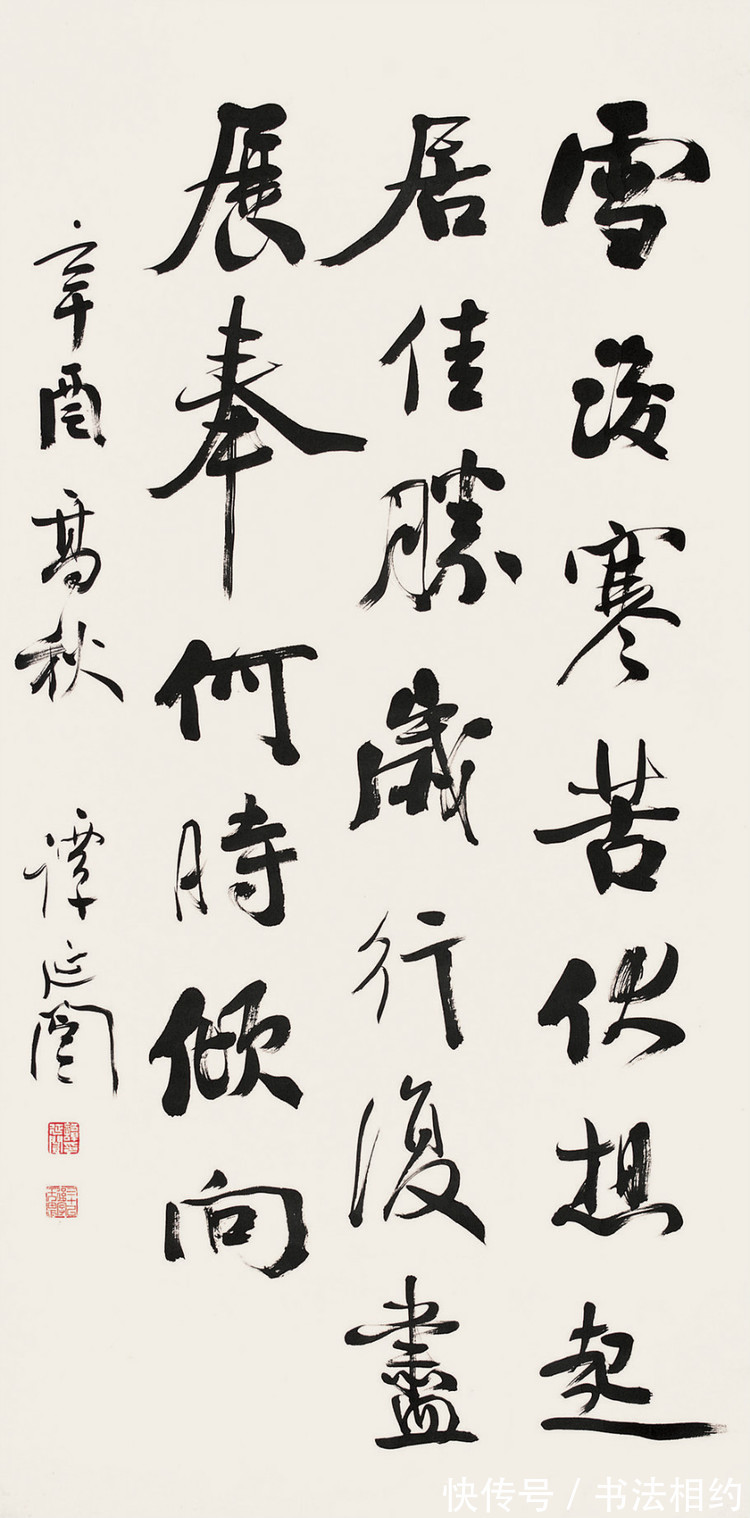 雪後寒苦伏想起
居佳勝歲行復盡
展奉何時傾向
辛酉高秋
譚延闓
快传号 / 书法相约